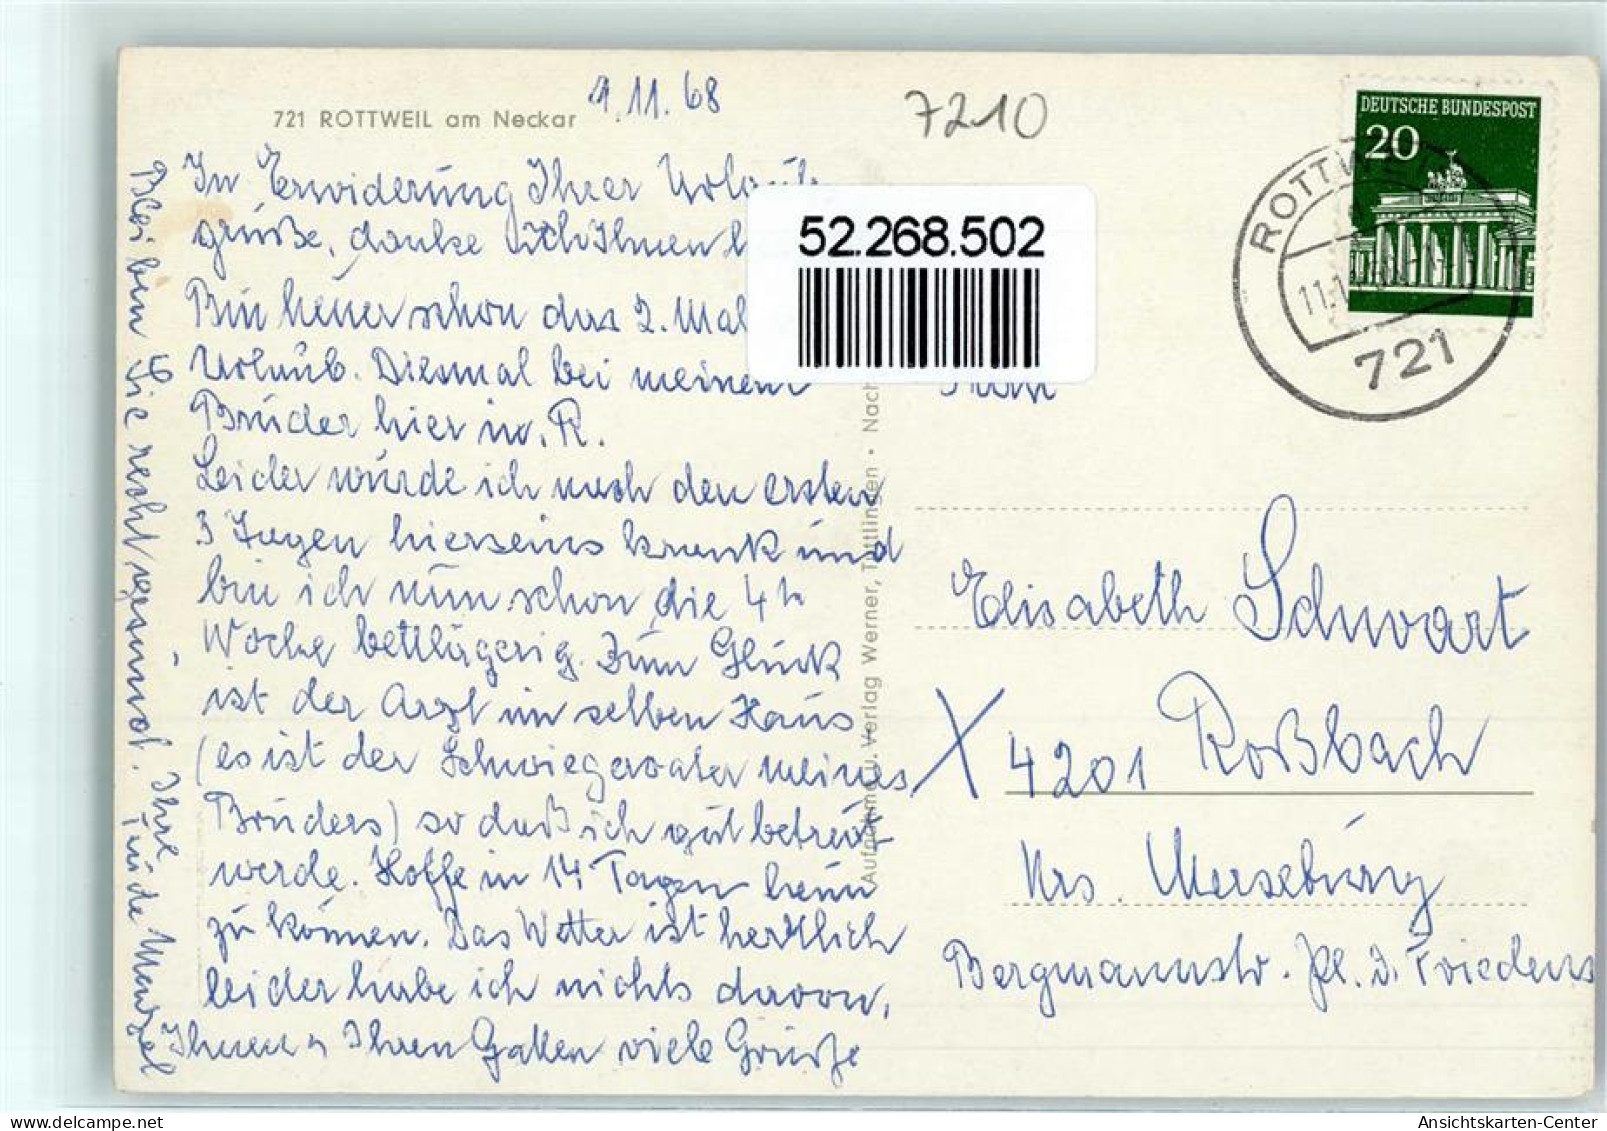 721 ROTTWEIL am Neckar
1.11.68
7210
DEUTSCHE BUNDESPOST
20
ROTTWEIL
721
52.268.502
In Erwiderung Ihrer Urlaub
grüße, danke ich Ihnen
Bin heuer schon das 2. Mal
Urlaub. Diesmal bei meinem
Bruder hier in R.
Leider wurde ich nach den ersten
3 Tagen hierseins krank und
bin ich nun schon die 4te
Woche bettlägerig. Zum Glück
ist der Arzt im selben Haus
(es ist der Schwiegervater meines
Bruders) so daß ich gut betreut
werde. Hoffe in 14 Tagen heim
zu können. Das Wetter ist herrlich
leider habe ich nichts davon.
Ihnen u Ihren Gatten viele Grüße
Bleiben Sie recht gesund. Ihre Trude Menzel
Aufnahme u. Verlag Werner, Tuttlingen · Nach
Frau
Elisabeth Schwart
X 4201 Roßbach
Krs. Merseburg
Bergmannstr. Pl. d. Friedens
Ansichtskarten-Center